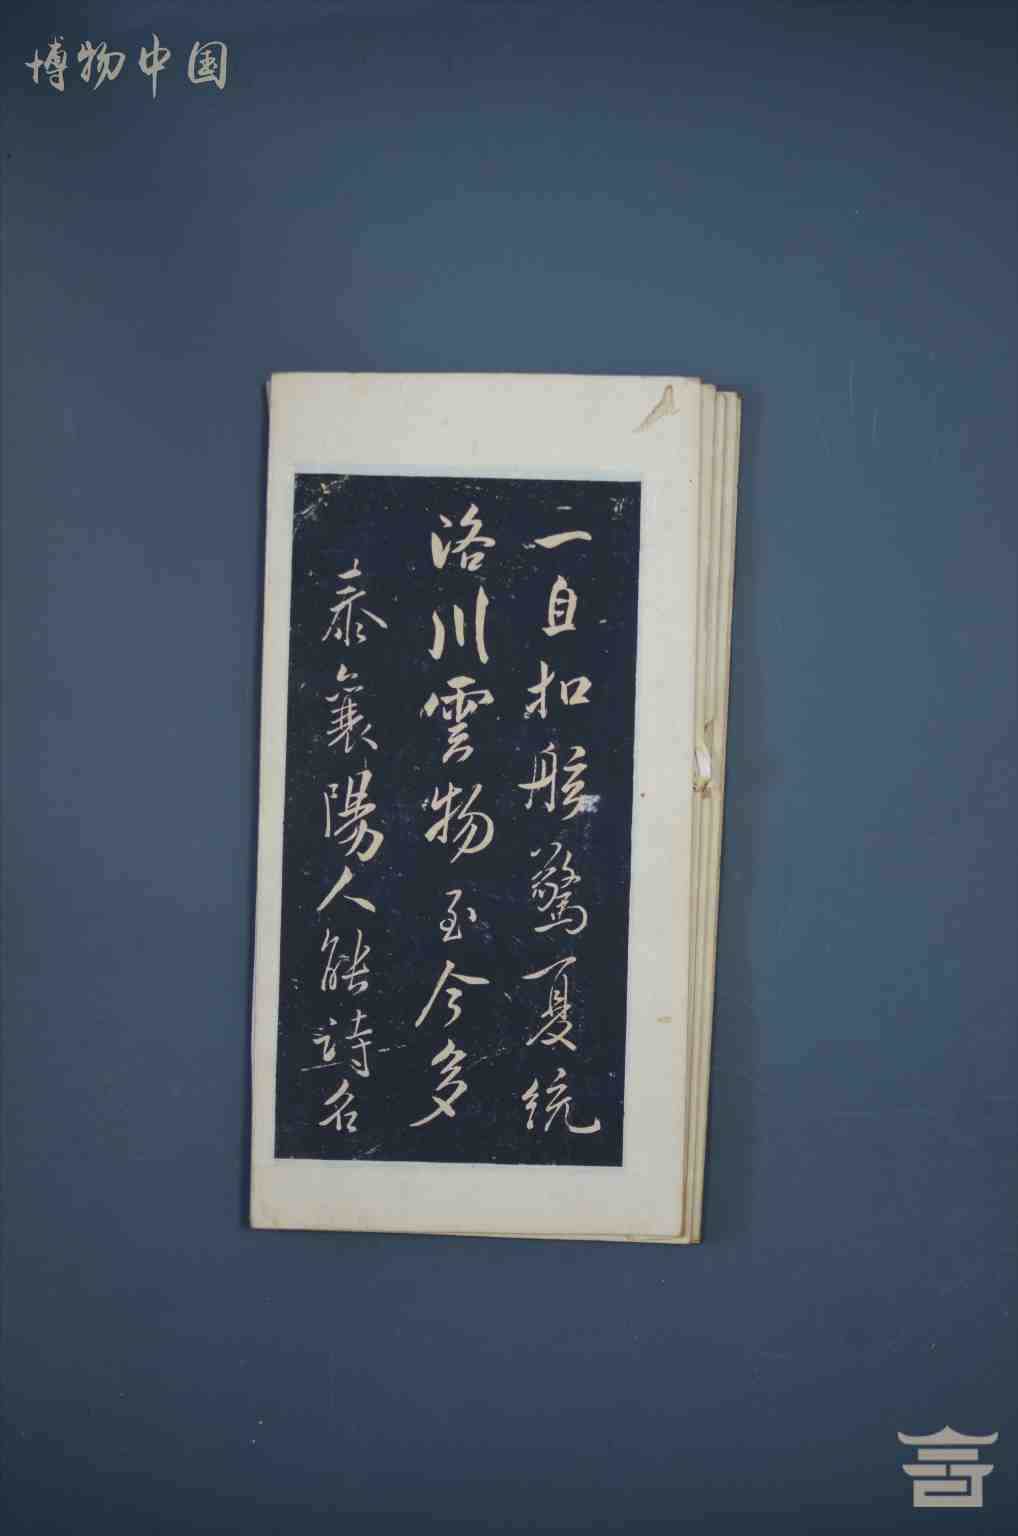 博物中国
一自扣舷驚夏統
洛川雲物至今多
泰襄陽人能詩名